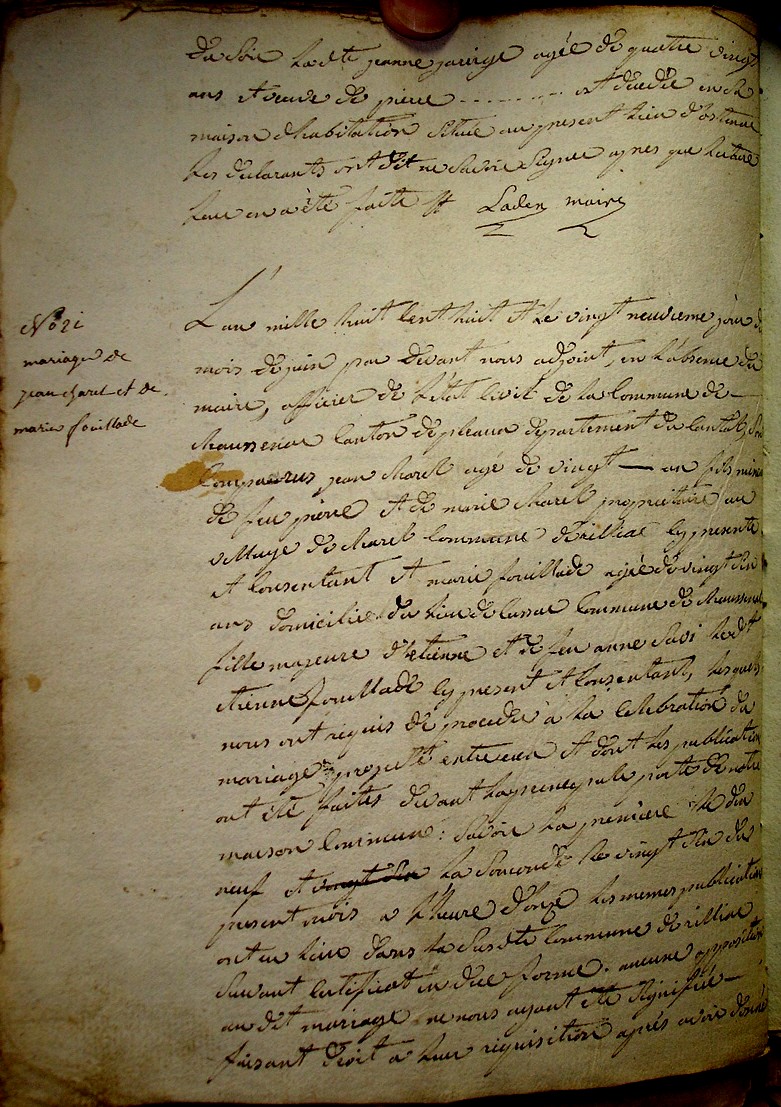 du soir ladite jeanne jarrige agée de quatre vingt
ans et veuve de pierre ---------- est décédée en sa
maison d'habitation située au present lieu d'ostenac
les déclarants ont dit ne savoir signer apres que lecture
leur en a été faite
Laden maire
No 21
mariage de
jean charel et de
marie fouillade
L'an mille huit cent huit et le vingt neuvieme jour du
mois de juin par devant nous adjoint, en l'absence du
maire, officier de l'état civil de la Commune de —
Chaussenac canton de pleaux département du Cantal, sont
comparus jean charel agé de vingt — un fils mineur
de feu pierre et de marie charel propriétaire au
village de charel Commune d'
cy presente
et consentant et marie fouillade agée de vingt six
ans domiciliée du lieu de
Commune de Chaussenac
fille majeure d'etienne et de feu anne
ledt
etienne fouillade cy present et consentant, lesquels
nous ont requis de procéder à la célébration du
mariage projetté entre eux et dont les publications
ont été faites devant la principale porte de notre
maison commune: savoir la première le dix
neuf et vingt six la seconde le vingt six du
present mois a l'heure d'onze les memes publications
ont eu lieu dans la susdte Commune d'
suivant certificat en due forme. aucune opposition
au dit mariage ne nous ayant été signifiée —
faisant droit a leur requisition après avoir donné